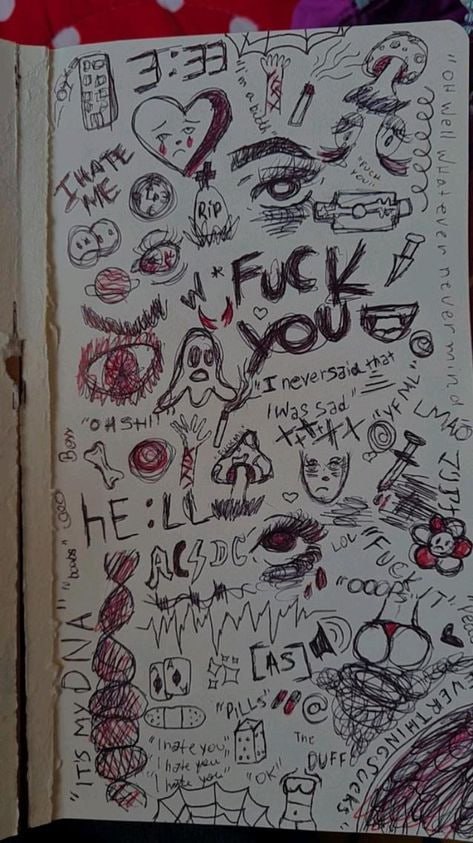 3:33
"i'm a bitch"
"OH well whatever nevermind"
I HATE
ME
"FUCK
YOU"
RIP
W*
FUCK
YOU
"I never said that
I was sad"
"OHSHI!"
"YFNL"
LMAO
Bom
HE:LL
ACSDC
LOL
"FUCK IT"
"OOOPS"
"boobs"
"IT'S MY DNA"
[AS]
"PILLS"
@
"I hate you
I hate you
I hate you"
The
DUFF
"OK"
EVERYTHINGSUCKS"